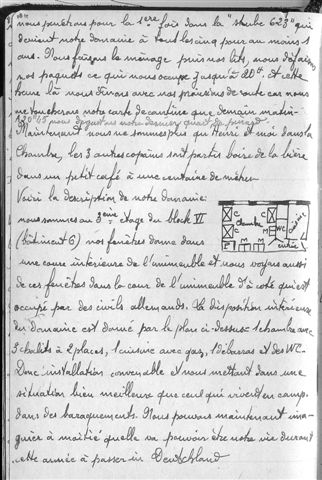 nous pénétrons pour la 1ère fois dans la "stube 623" qui
devient notre domaine à tous les cinq pour au moins 1
ans. Nous faisons le ménage puis nos lits, nous défaisons
nos paquets ce qui nous occupe jusqu'à 22H. et cette
heure là nous dinons avec nos provisions de route car nous
ne toucherons notre carte de cantine que demain matin.
nous dégustons notre dernier quart de pinard
Maintenant nous ne sommes plus qu'Henri et moi dans la
chambre, les 3 autres copains sont partis boire de la bière
dans un petit café à une centaine de mètres.
Voici la description de notre domaine:
nous sommes au 3ème étage du block VI
(bâtiment 6) nos fenêtres donne dans
une cour intérieure de l'immeuble et nous voyons aussi
de ces fenêtres dans la cour de l'immeuble d'à coté qui est
occupé par des civils allemands. La disposition intérieure
du domaine est donné par le plan ci-dessus: 1 chambre avec
3 chalits à 2 places, 1 cuisine avec gaz, 1 débarras et des WC.
Donc installation convenable et nous mettant dans une
situation bien meilleure que ceux qui vivent en camp
dans des baraquements. Nous pouvons maintenant ima-
giner à moitié quelle va pouvoir être notre vie durant
cette année à passer in Deutschland
C
C
chambre
C
M
M
WC
cuisine
entrée